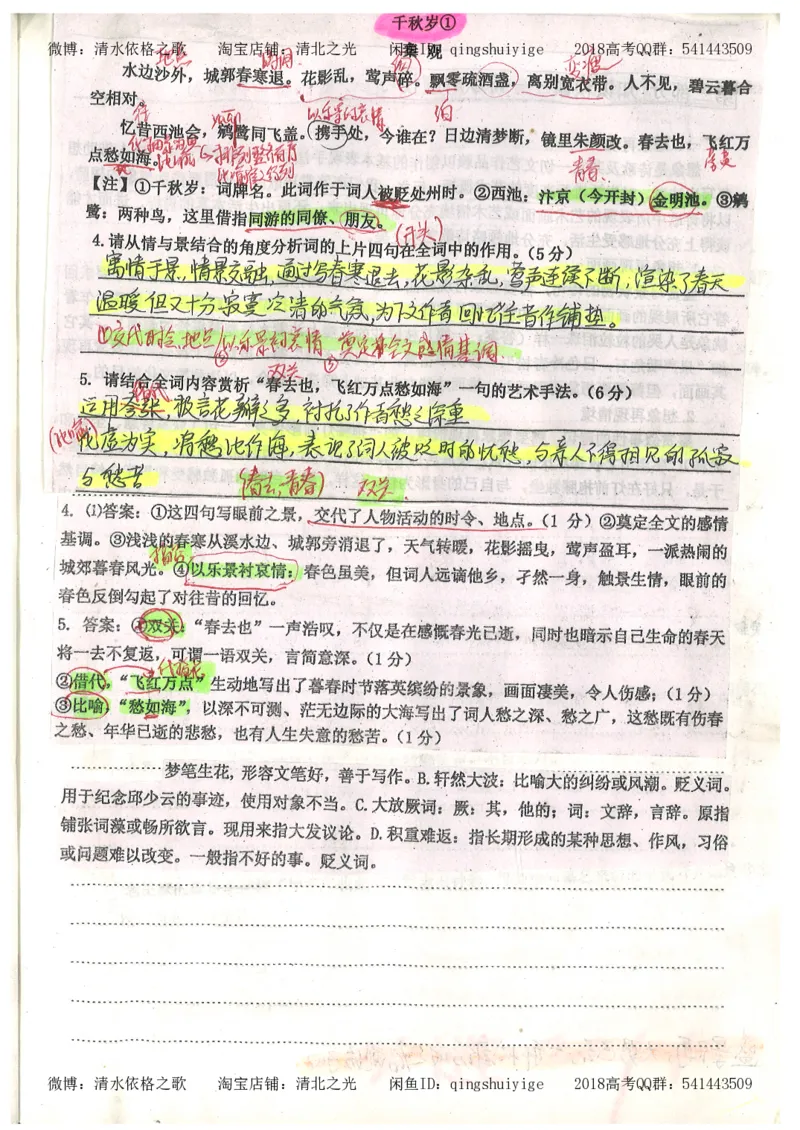 千秋岁①
微博：清水依格之歌 淘宝店铺：清北之光 闲鱼ID：qingshuiyige 2018高考QQ群：541443509
秦 观
地点 时间
水边沙外，城郭春寒退。花影乱，莺声碎。飘零疏酒盏，离别宽衣带。人不见，碧云暮合
空相对。
以乐景衬哀情
忆昔西池会，鹓鹭同飞盖。携手处，今谁在？日边清梦断，镜里朱颜改。春去也，飞红万
点愁如海。
青春
【注】①千秋岁：词牌名。此词作于词人被贬处州时。②西池：汴京（今开封）金明池。③鹓
鹭：两种鸟，这里借指同游的同僚、朋友。
（开头）
4.请从情与景结合的角度分析词的上片四句在全词中的作用。（5分）
寓情于景，情景交融，通过写春寒退去，花影杂乱，莺声连续不断，渲染了春天
温暖但又十分寂寥冷清的气氛，为下文作者回忆往昔作铺垫。
①交代时令、地点 ③以乐景衬哀情 ②奠定全文感情基调
双关
5. 请结合全词内容赏析“春去也，飞红万点愁如海”一句的艺术手法。（6分）
借代
运用夸张，极言花瓣之多，衬托了作者愁之深重
（比喻）
化虚为实，将愁比作海，表现了词人被贬时的忧愁，与亲人不得相见的孤寂
与愁苦
（春去，青春） 双关
4.（1）答案：①这四句写眼前之景，交代了人物活动的时令、地点。（1 分）②奠定全文的感情
基调。③浅浅的春寒从溪水边、城郭旁消退了，天气转暖，花影摇曳，莺声盈耳，一派热闹的
城郊暮春风光。④以乐景衬哀情：春色虽美，但词人远谪他乡，孑然一身，触景生情，眼前的
春色反倒勾起了对往昔的回忆。
5. 答案：①双关：“春去也”一声浩叹，不仅是在感慨春光已逝，同时也暗示自己生命的春天
将一去不复返，可谓一语双关，言简意深。（1 分）
②借代，“飞红万点”生动地写出了暮春时节落英缤纷的景象，画面凄美，令人伤感；（1 分）
③比喻，“愁如海”，以深不可测、茫无边际的大海写出了词人愁之深、愁之广，这愁既有伤春
之愁、年华已逝的悲愁，也有人生失意的愁苦。（1 分）
梦笔生花，形容文笔好，善于写作。B.轩然大波：比喻大的纠纷或风潮。贬义词。
用于纪念邱少云的事迹，使用对象不当。C.大放厥词：厥：其，他的；词：文辞，言辞。原指
铺张词藻或畅所欲言。现用来指大发议论。D.积重难返：指长期形成的某种思想、作风，习俗
或问题难以改变。一般指不好的事。贬义词。
微博：清水依格之歌 淘宝店铺：清北之光 闲鱼ID：qingshuiyige 2018高考QQ群：541443509